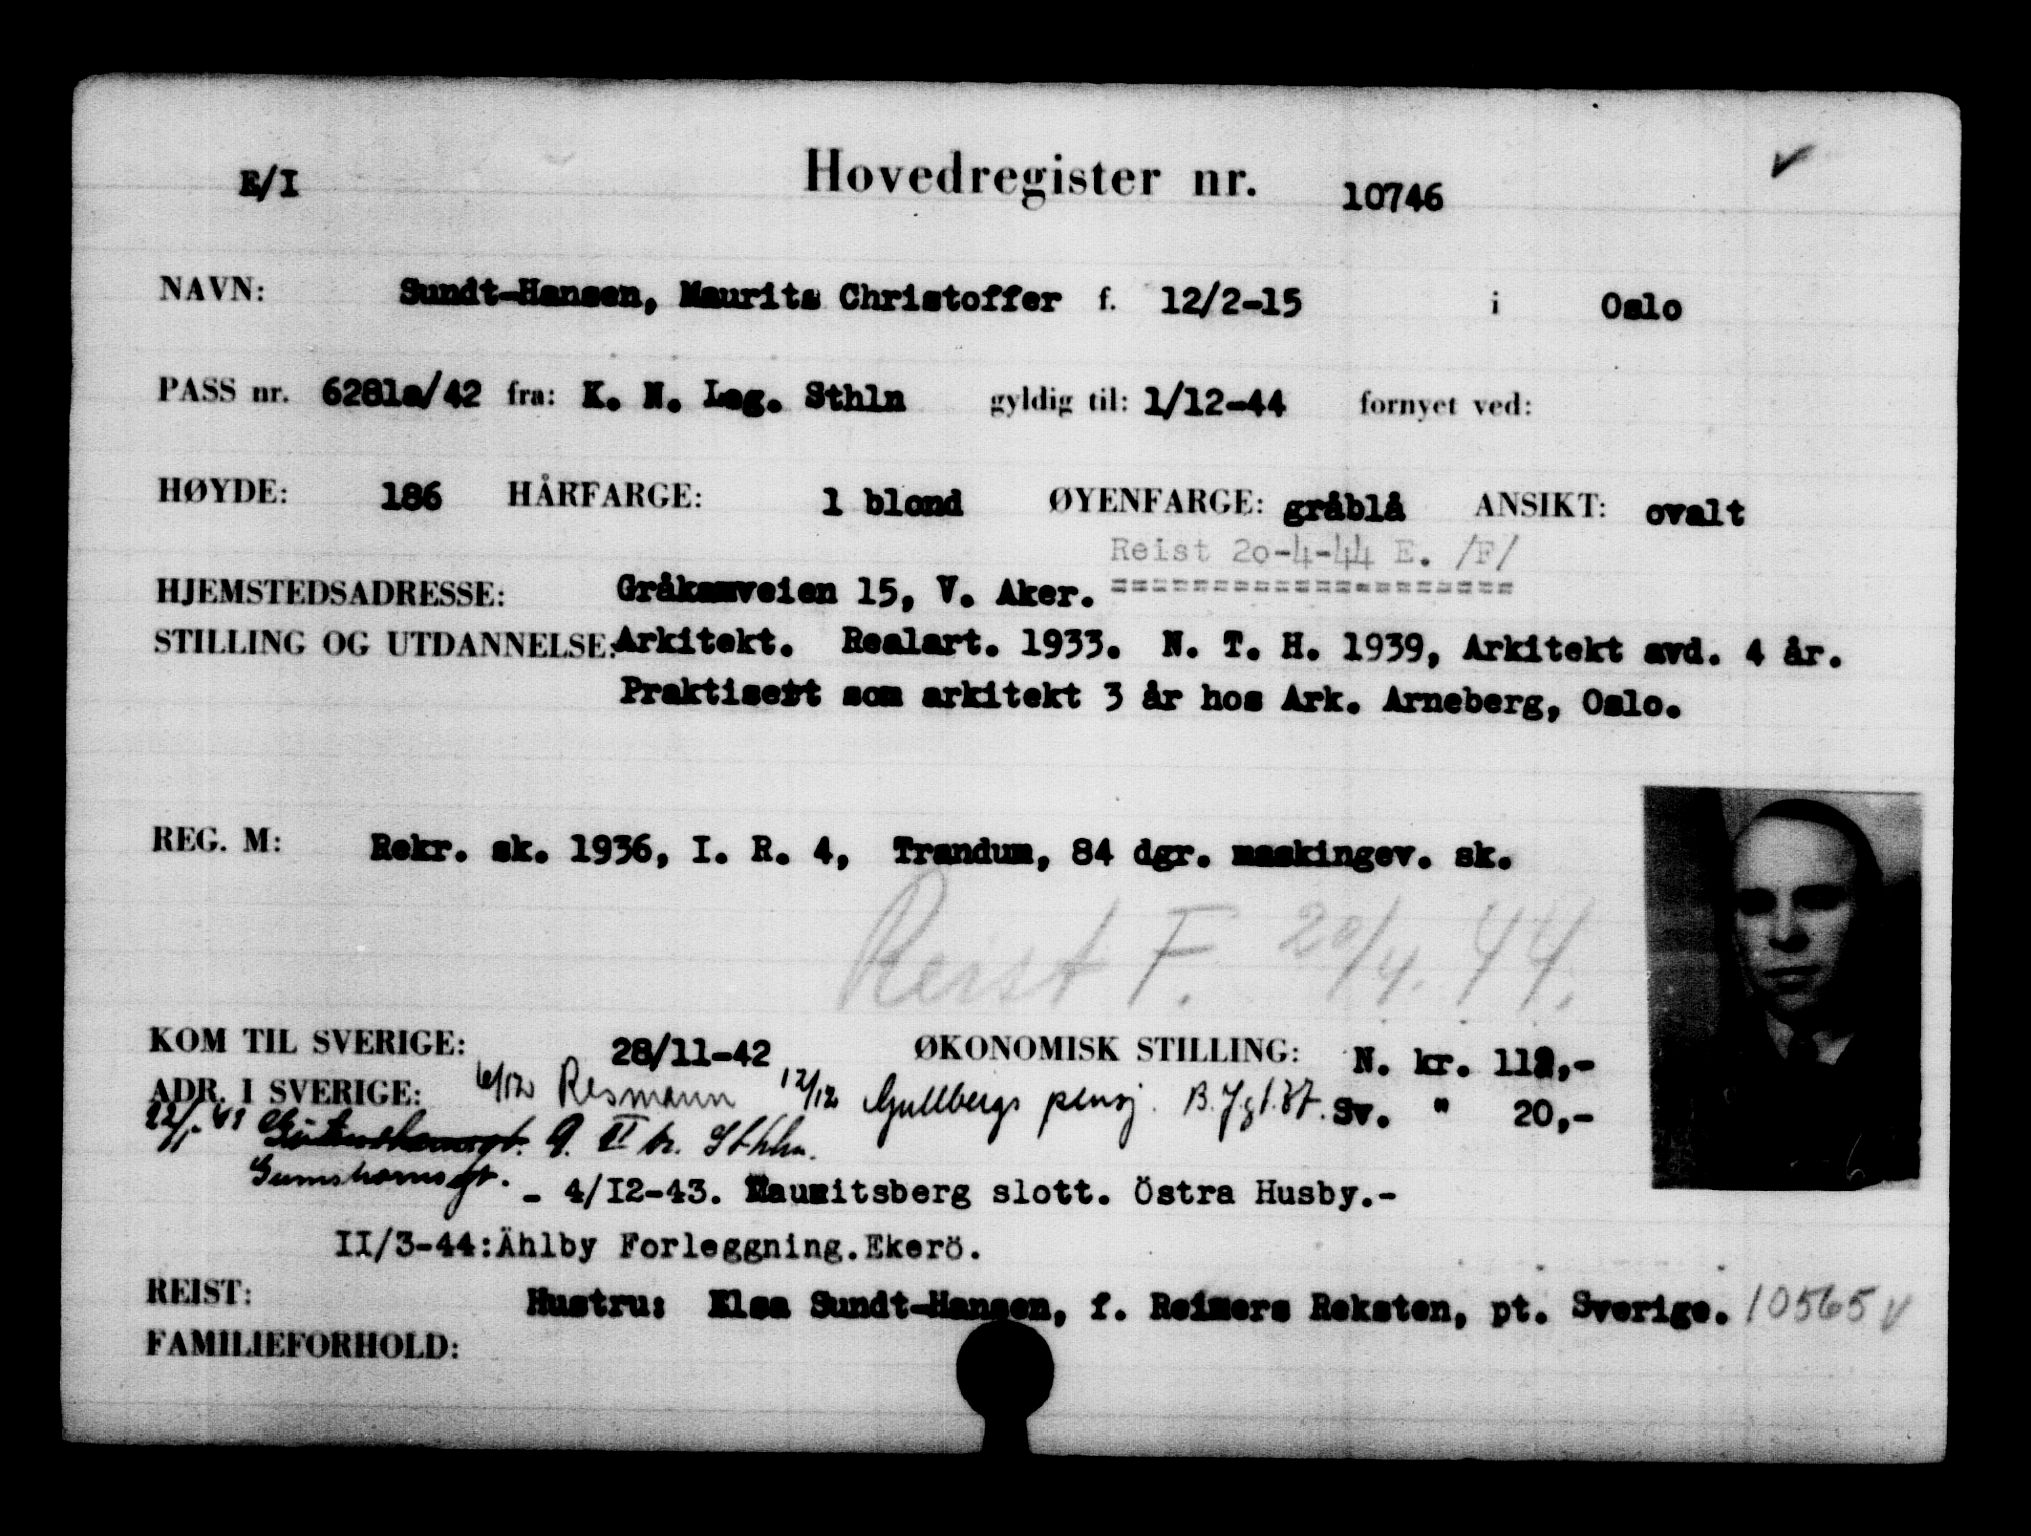 E/I Hovedregister nr. 10746
NAVN: Sundt-Hansen, Maurits Christoffer f. 12/2-15 i Oslo
PASS nr. 6281a/42 fra: K. N. Leg. Sthln gyldig til: 1/12-44 fornyet ved:
HØYDE: 186 HÅRFARGE: l blond ØYENFARGE: gråblå ANSIKT: ovalt
Reist 20-4-44 E. /F/
HJEMSTEDSADRESSE: Gråkamveien 15, V. Aker. ====================
STILLING OG UTDANNELSE: Arkitekt. Realart. 1933. N. T. H. 1939, Arkitekt avd. 4 år.
Praktisert som arkitekt 3 år hos Ark. Arneberg, Oslo.
REG. M: Rekr. sk. 1936, I. R. 4, Trandum, 84 dgr. maskingev. sk.
Reist F. 20/4. 44.
KOM TIL SVERIGE: 28/11-42 ØKONOMISK STILLING: N. kr. 112,-
ADR. I SVERIGE: 6/12 Resmann 12/12 Gullbergs pensj. Sv. " 20,-
9. II tr. Sthlm.
- 4/12-43. Mauritsberg slott. Östra Husby.-
II/3-44:Ählby Forleggning.Ekerö.
REIST:
Hustru: Elsa Sundt-Hansen, f. Reimers Reksten, pt. Sverige. 10565 V
FAMILIEFORHOLD: